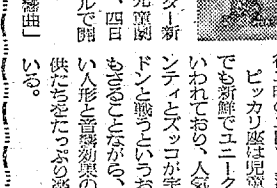 ピッカリ座は児童
でも新鮮でユニーク
いわれており、人気
ンティとズッコが宇
ドンと戦うというお
もさることながら、
い人形と音響効果の
供たちをたっぷり楽
いる。
ター新
児童劇
、四日
ルで開
彎曲」